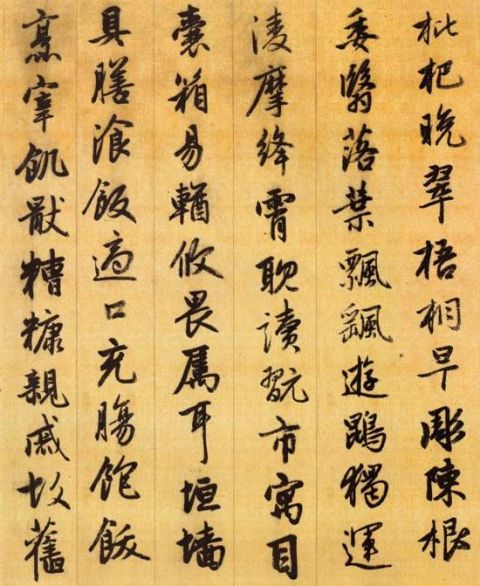 枇杷晚翠梧桐早彫陳根
委翳落葉飄颻遊鵾獨運
淩摩絳霄耽讀翫市寓目
囊箱易輶攸畏屬耳垣墻
具膳湌飯適口充腸飽飫
烹宰飢猒糟糠親戚故舊